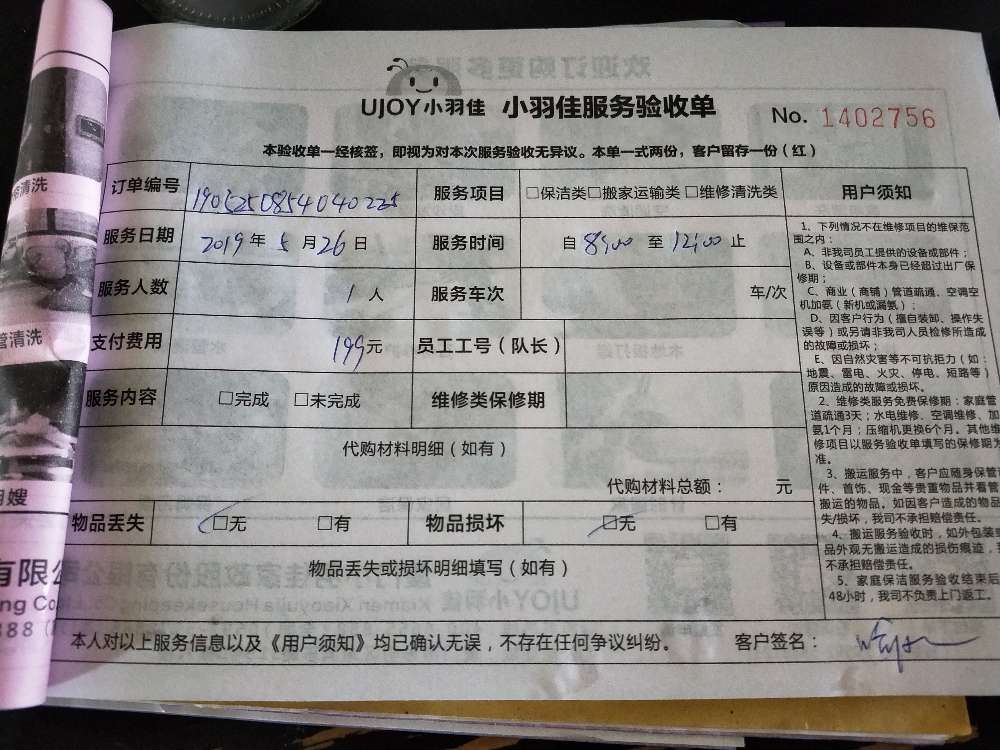 欢迎订购更多服务
UJOY小羽佳 小羽佳服务验收单 No. 1402756
本验收单一经核签，即视为对本次服务验收无异议。本单一式两份，客户留存一份（红）
订单编号 1905250854040225 服务项目 □保洁类□搬家运输类□维修清洗类 用户须知
服务日期 2019年5月26日 服务时间 自8:00至12:00止
服务人数 1人 服务车次 车/次
支付费用 199元 员工工号（队长）
服务内容 □完成 □未完成 维修类保修期
代购材料明细（如有）
代购材料总额： 元
物品丢失 □无 □有 物品损坏 □无 □有
物品丢失或损坏明细填写（如有）
本人对以上服务信息以及《用户须知》均已确认无误，不存在任何争议纠纷。 客户签名：
1、下列情况不在维修项目的维保范
围之内：
A、非我司员工提供的设备或部件；
B、设备或部件本身已经超过出厂保
修期；
C、商业（商铺）管道疏通、空调空
机加氨（新机或漏氨）；
D、因客户行为（擅自装卸、操作失
误等）或另请非我司人员检修所造成
的故障或损坏；
E、因自然灾害等不可抗拒力（如：
地震、雷电、火灾、停电、短路等）
原因造成的故障或损坏。
2、维修类服务免费保修期：家庭管
道疏通3天；水电维修、空调维修、加
氨1个月；压缩机更换6个月。其他维
修项目以服务验收单填写的保修期为
准。
3、搬运服务中，客户应随身保管
件、首饰、现金等贵重物品并看管
搬运的物品。如因客户造成的物品
失/损坏，我司不承担赔偿责任。
4、搬运服务验收时，如外包装
品外观无搬运造成的损伤痕迹，
不承担赔偿责任。
5、家庭保洁服务验收结束后
48小时，我司不负责上门返工。
清洗
管清洗
月嫂
有限公
ng Co
888